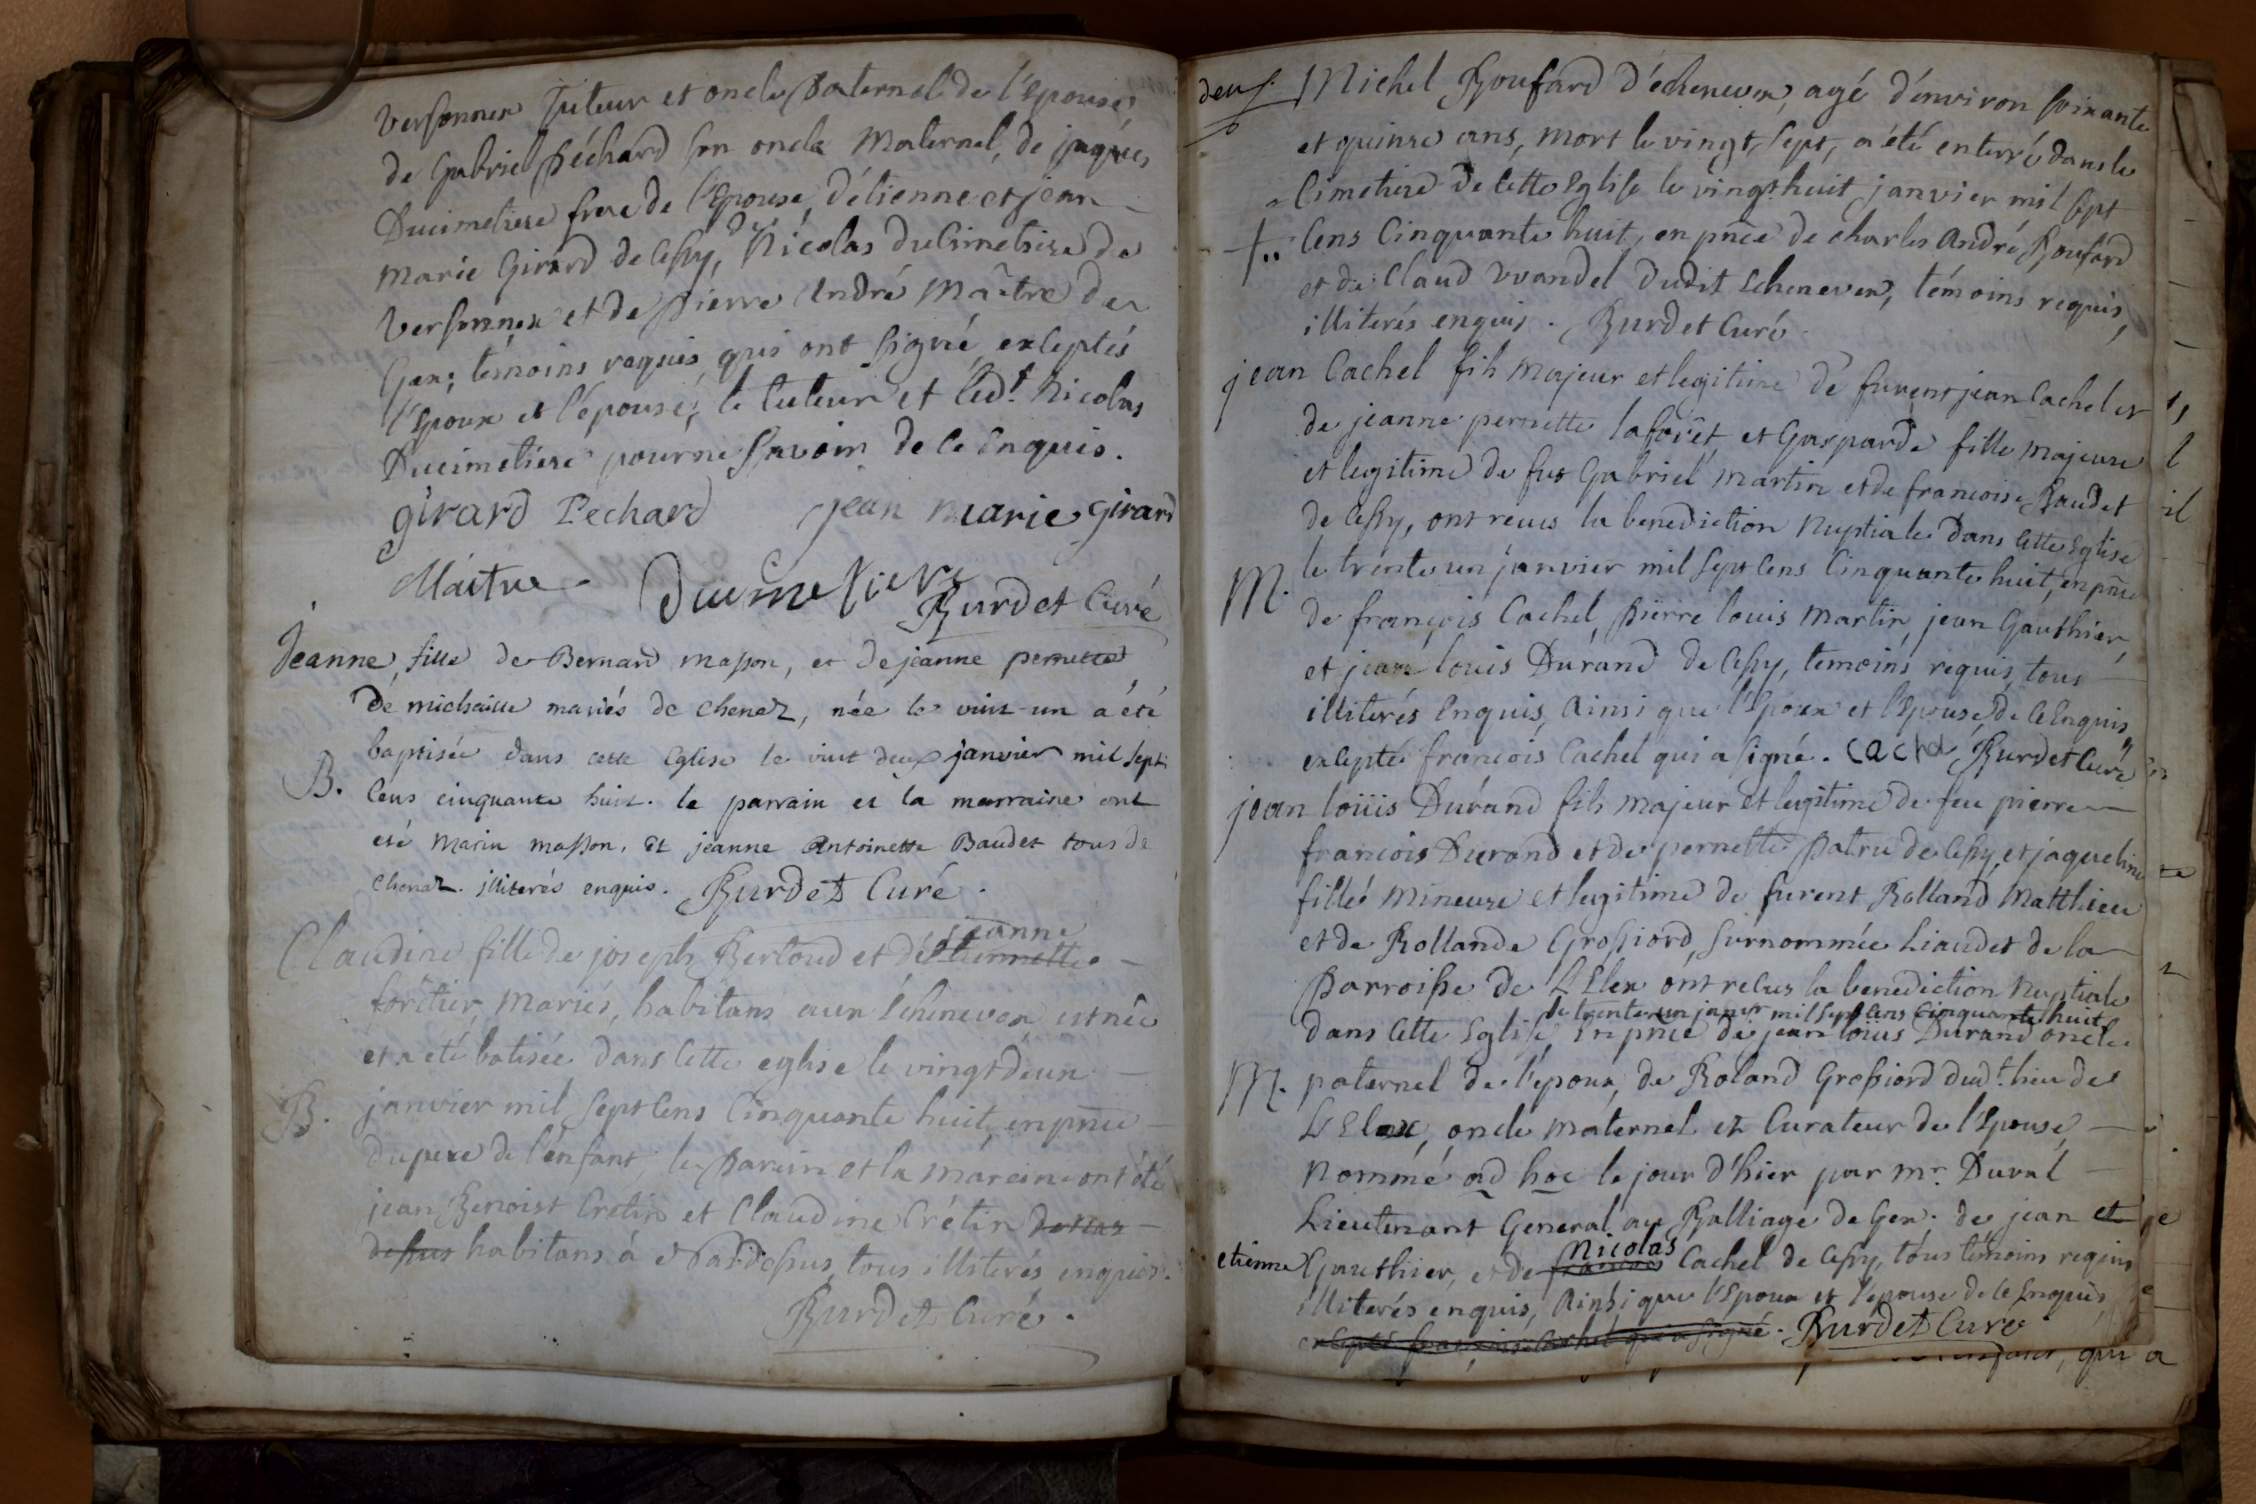 Versonnex Tuteur et oncle paternel de l'Epouse,
de Gabriel Péchard son oncle Maternel, de jaques
Ducimetiere frere de l'Epouse, d'étienne et jean
marie Girard de Cessy, de Nicolas du Cimetiere de
Versonnex et de pierre André Maître de
Gex; témoins requis, qui ont signé, exceptés
l'Epoux et l'épouse, le tuteur et led.t Nicolas
Ducimetiere pour ne savoir de ce Enquis.
girard Pechard jean marie girard
Maitre Ducimetiere
Burdet Curé
Jeanne, fille de Bernard masson, et de jeanne pernette
de michaille mariés de chenaz, née le vint-un a été
baptisée dans cette Eglise le vint deux janvier mil sept
B. Cens cinquante huit. le parrain et la marraine ont
eté Marin masson, et jeanne Antoinette Baudet tous de
chenaz. illiterés enquis. Burdet Curé.
jeanne
Claudine fille de joseph Bertoud et d'étiennette
forêtier, mariés, habitans aux Echenevex est née
et a eté batisée dans cette eglise le vingt deux
B. janvier mil sept Cens Cinquante huit, en pnce
du pere de l'enfant, le Parein et la mareine ont été
jean Benoist Cretin et Claudine Crétin
dessus habitans à et pardessus, tous illiterés enquis.
Burdet Curé.
deux. Michel Roufard d'échenevex, agé d'environ soixante
et quinze ans, mort le vingt sept, a été enterré dans le
Cimetiere de Cette Eglise le vingt huit janvier mil sept
Cens Cinquante huit, en pnce de charles André Roufard
et de Claud Vuandel dudit Echenevex, témoins requis,
illiterés enquis. Burdet Curé.
jean Cachel fils majeur et legitime de furent jean Cachel et
de jeanne pernette laforêt et Gasparde fille majeure
et legitime de fus Gabriel martin et de francoise Baudet
de Cessy, ont recus la benediction Nuptiale dans Cette Eglise
M. le trente un janvier mil sept Cens Cinquante huit, en pnce
de françois Cachel, pierre louis martin, jean Gauthier,
et jean louis Durand de Cessy, temoins requis, tous
illiterés Enquis, Ainsi que l'Epoux et l'Epouse, de ce Enquis,
excepté francois Cachel qui a signé. Cachel Burdet Curé
jean loüis Durand fils majeur et legitime de feu pierre
francois Durand et de pernette patru de Cessy, et jaqueline
fille Mineure et legitime de furent Rolland Matthieu
et de Rollande Grossiord, surnommée Liaudet de la
Parroisse de LElex ont recus la benediction Nuptiale
le trente un janvr mil sept Cens Cinquante huit
dans Cette Eglise, En pnce de jean loüis Durand oncle
M. paternel de l'epoux, de Roland Grossiord dud.t lieu de
LElex, oncle maternel et Curateur de l'Epouse,
Nommé ad hoc le jour d'hier par mr. Duval
Lieutenant General au Balliage de Gex. de jean et
Nicolas
etienne Gauthier, et de francois Cachel de Cessy, tous témoins requis
illiterés enquis, Ainsi que l'Epoux et l'epouse de ce Enquis,
excepté françois Cachel qui a signé. Burdet Curé
qui a